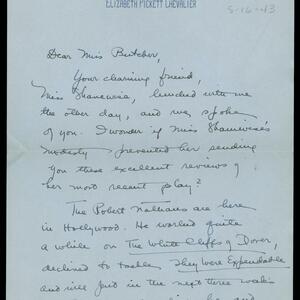 ELIZABETH PICKETT CHEVALIER
5-16-43
Dear Miss Butcher,
Your charming friend,
Miss Shamewise, lunched with me
the other day, and we spoke
of you. I wonder if Miss
modesty prevented her sending
you these excellent reviews of
her most recent play?
The Robert Nathans are here
in Hollywood. He worked quite
a while on The White Cliffs of Dover,
declined to They Were Expendable
and will in the next three weeks
and